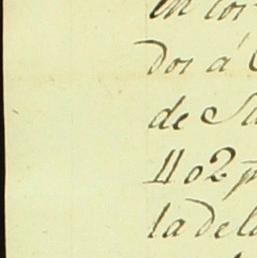 en cos
dos á
de Su
402 p
la de la